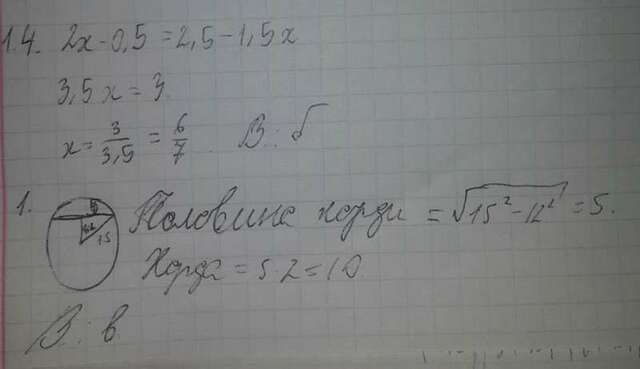 1.4. 2x-0,5=2,5-1,5x
3,5x=3.
x=3/3,5=6/7. В: б
1. 12 15 Половина хорди =√15²-12²=5.
Хорда=5·2=10
В: в